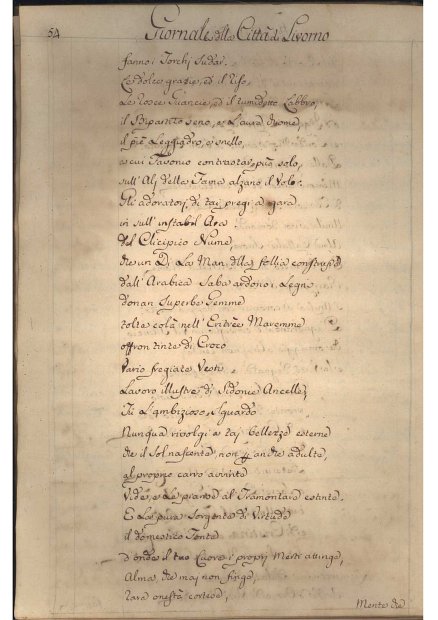 54
Giornale della Città di Livorno
fanno i Torchj sudar.
Le dolci grazie, ed il riso,
Le rosee Guancie, ed il tumidetto Labbro,
il Bipartito seno, e L'aura
il piè Leggiadro, e snello,
a cui Favonio contrastar può solo,
sull'Alj della Fama alzano il Volo.
Gli adoratorj di taj pregj a gara
in sull'instabil Ara
del Nume,
che un Di La Man della follia construsse
dall'Arabica Saba ardono i Legni
donan superbe Gemme
tolte colà nell'Eritree Maremme
offron tinte di Croco
Vario fregiate Vesti
Lavoro illustre di Sidonie Ancelle;
Tu L'ambizioso sguardo
Nunqua rivolgi a taj bellezze esterne
che il Sol nascente non anche adulte,
al proprio carro avvinte
Vide, e Le pianse al Tramontare estinte.
E La pura sorgente di Virtude
il domestico Fonte
d'onde il tuo Cuore i proprj Merti attinge,
Alma, che maj non finge,
rara onestà cortese,
Mente che